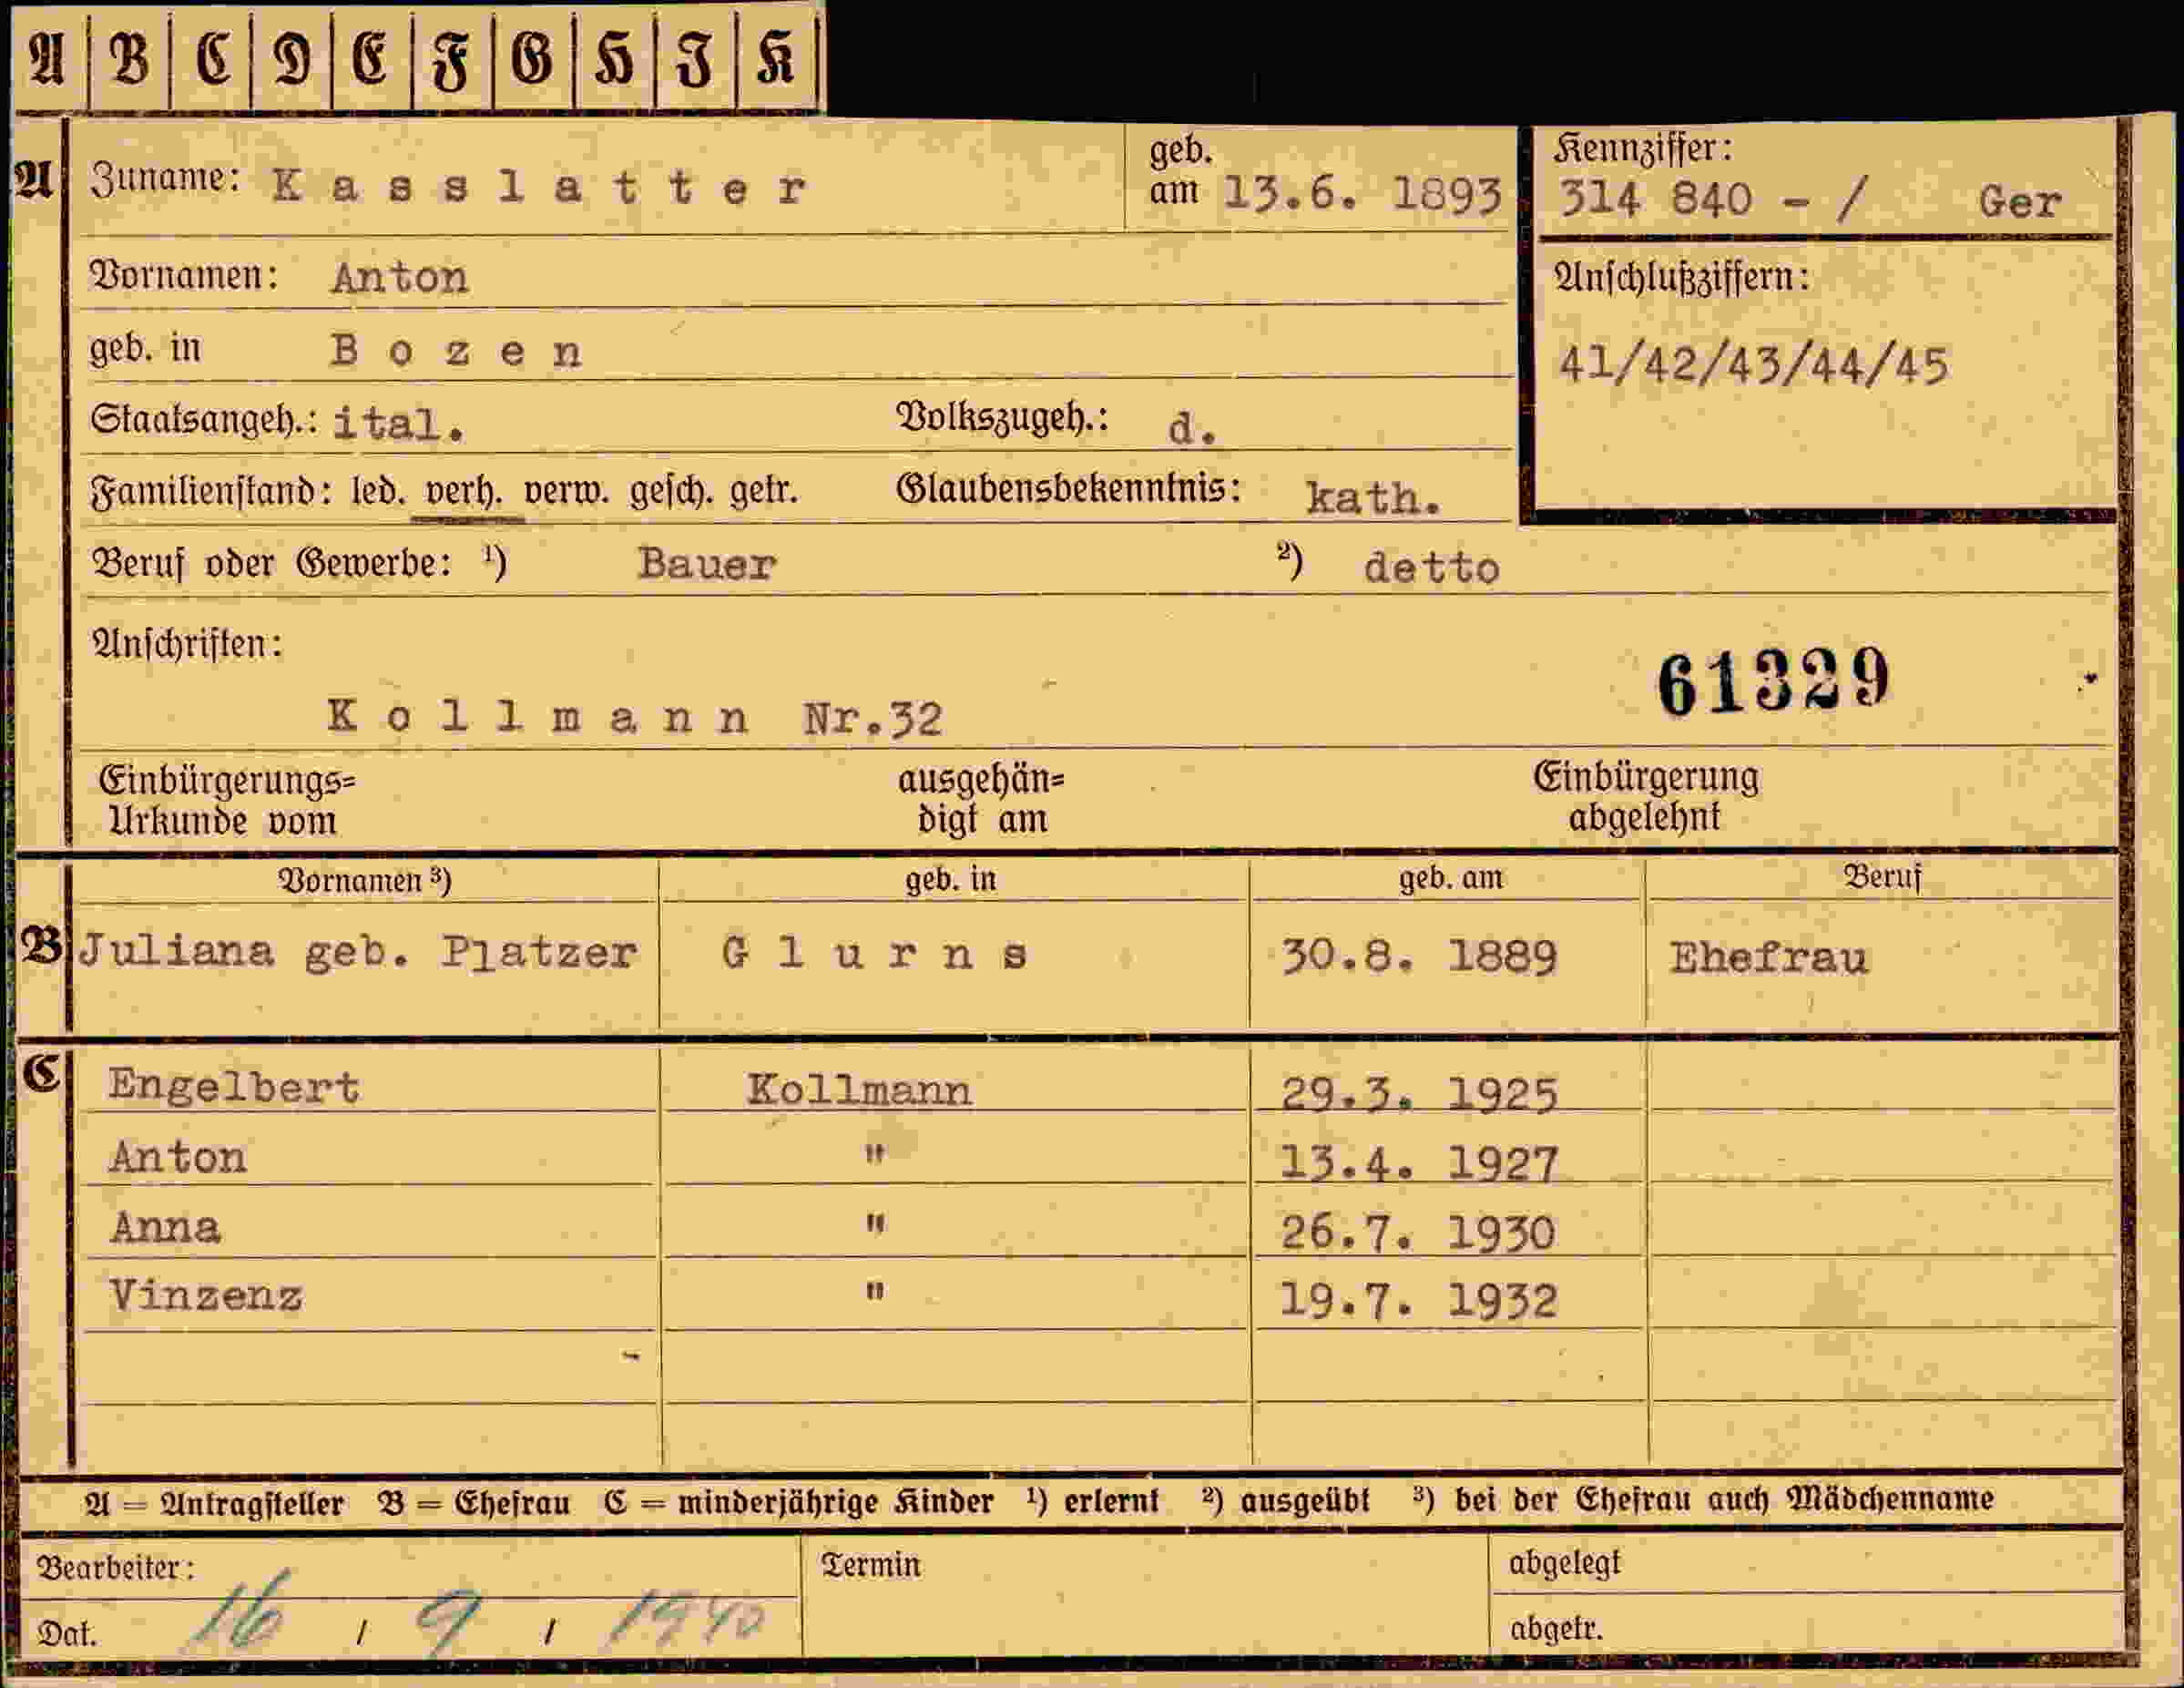 A B C D E F G H I K
A Zuname: Kasslatter geb. am 13.6. 1893 Kennziffer: 314 840 - / Ger
Vornamen: Anton Anschlußziffern:
geb. in Bozen 41/42/43/44/45
Staatsangeh.: ital. Volkszugeh.: d.
Familienstand: led. verh. verw. gesch. getr. Glaubensbekenntnis: kath.
Beruf oder Gewerbe: ¹) Bauer ²) detto
Anschriften:
Kollmann Nr.32 61329
Einbürgerungs= ausgehän= Einbürgerung
Urkunde vom digt am abgelehnt
Vornamen ³) geb. in geb. am Beruf
B Juliana geb. Platzer Glurns 30.8. 1889 Ehefrau
C Engelbert Kollmann 29.3. 1925
Anton " 13.4. 1927
Anna " 26.7. 1930
Vinzenz " 19.7. 1932
A = Antragsteller B = Ehefrau C = minderjährige Kinder ¹) erlernt ²) ausgeübt ³) bei der Ehefrau auch Mädchenname
Bearbeiter: Termin abgelegt
Dat. 16 / 9 / 1940 abgetr.